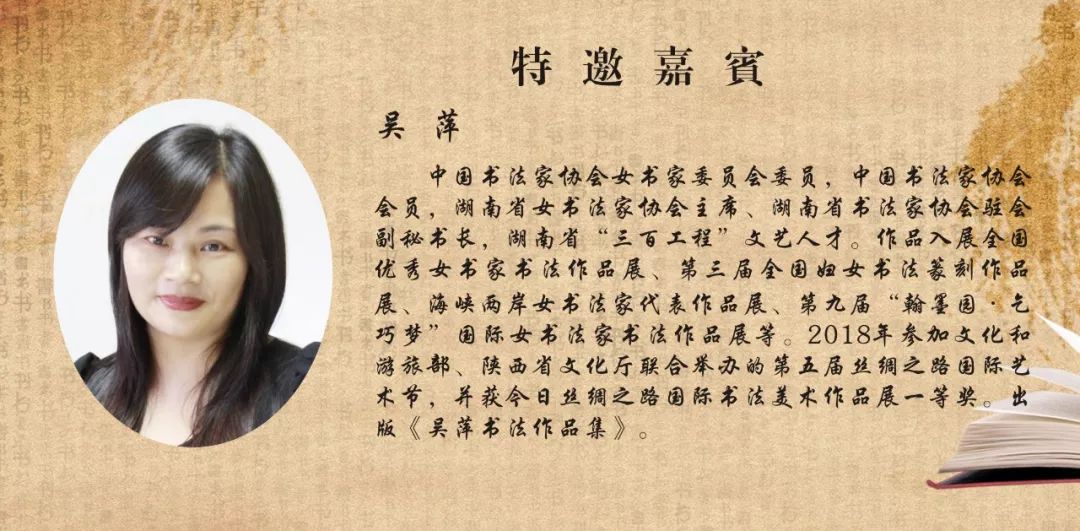 特邀嘉賓
吴萍
中国书法家协会女书家委员会委员，中国书法家协会
会员，湖南省女书法家协会主席、湖南省书法家协会驻会
副秘书长，湖南省“三百工程”文艺人才。作品入展全国
优秀女书家书法作品展、第三届全国妇女书法篆刻作品
展、海峡两岸女书法家代表作品展、第九届“翰墨园·乞
巧梦”国际女书法家书法作品展等。2018年参加文化和
游旅部、陕西省文化厅联合举办的第五届丝绸之路国际艺
术节，并获今日丝绸之路国际书法美术作品展一等奖。出
版《吴萍书法作品集》。